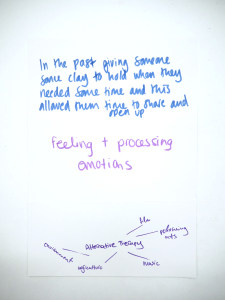 In the past giving someone
some clay to hold when they
needed some time and this
allowed them time to share and
open up
feeling + processing
emotions
film
performing
arts
environment
Alternative Therapy
music